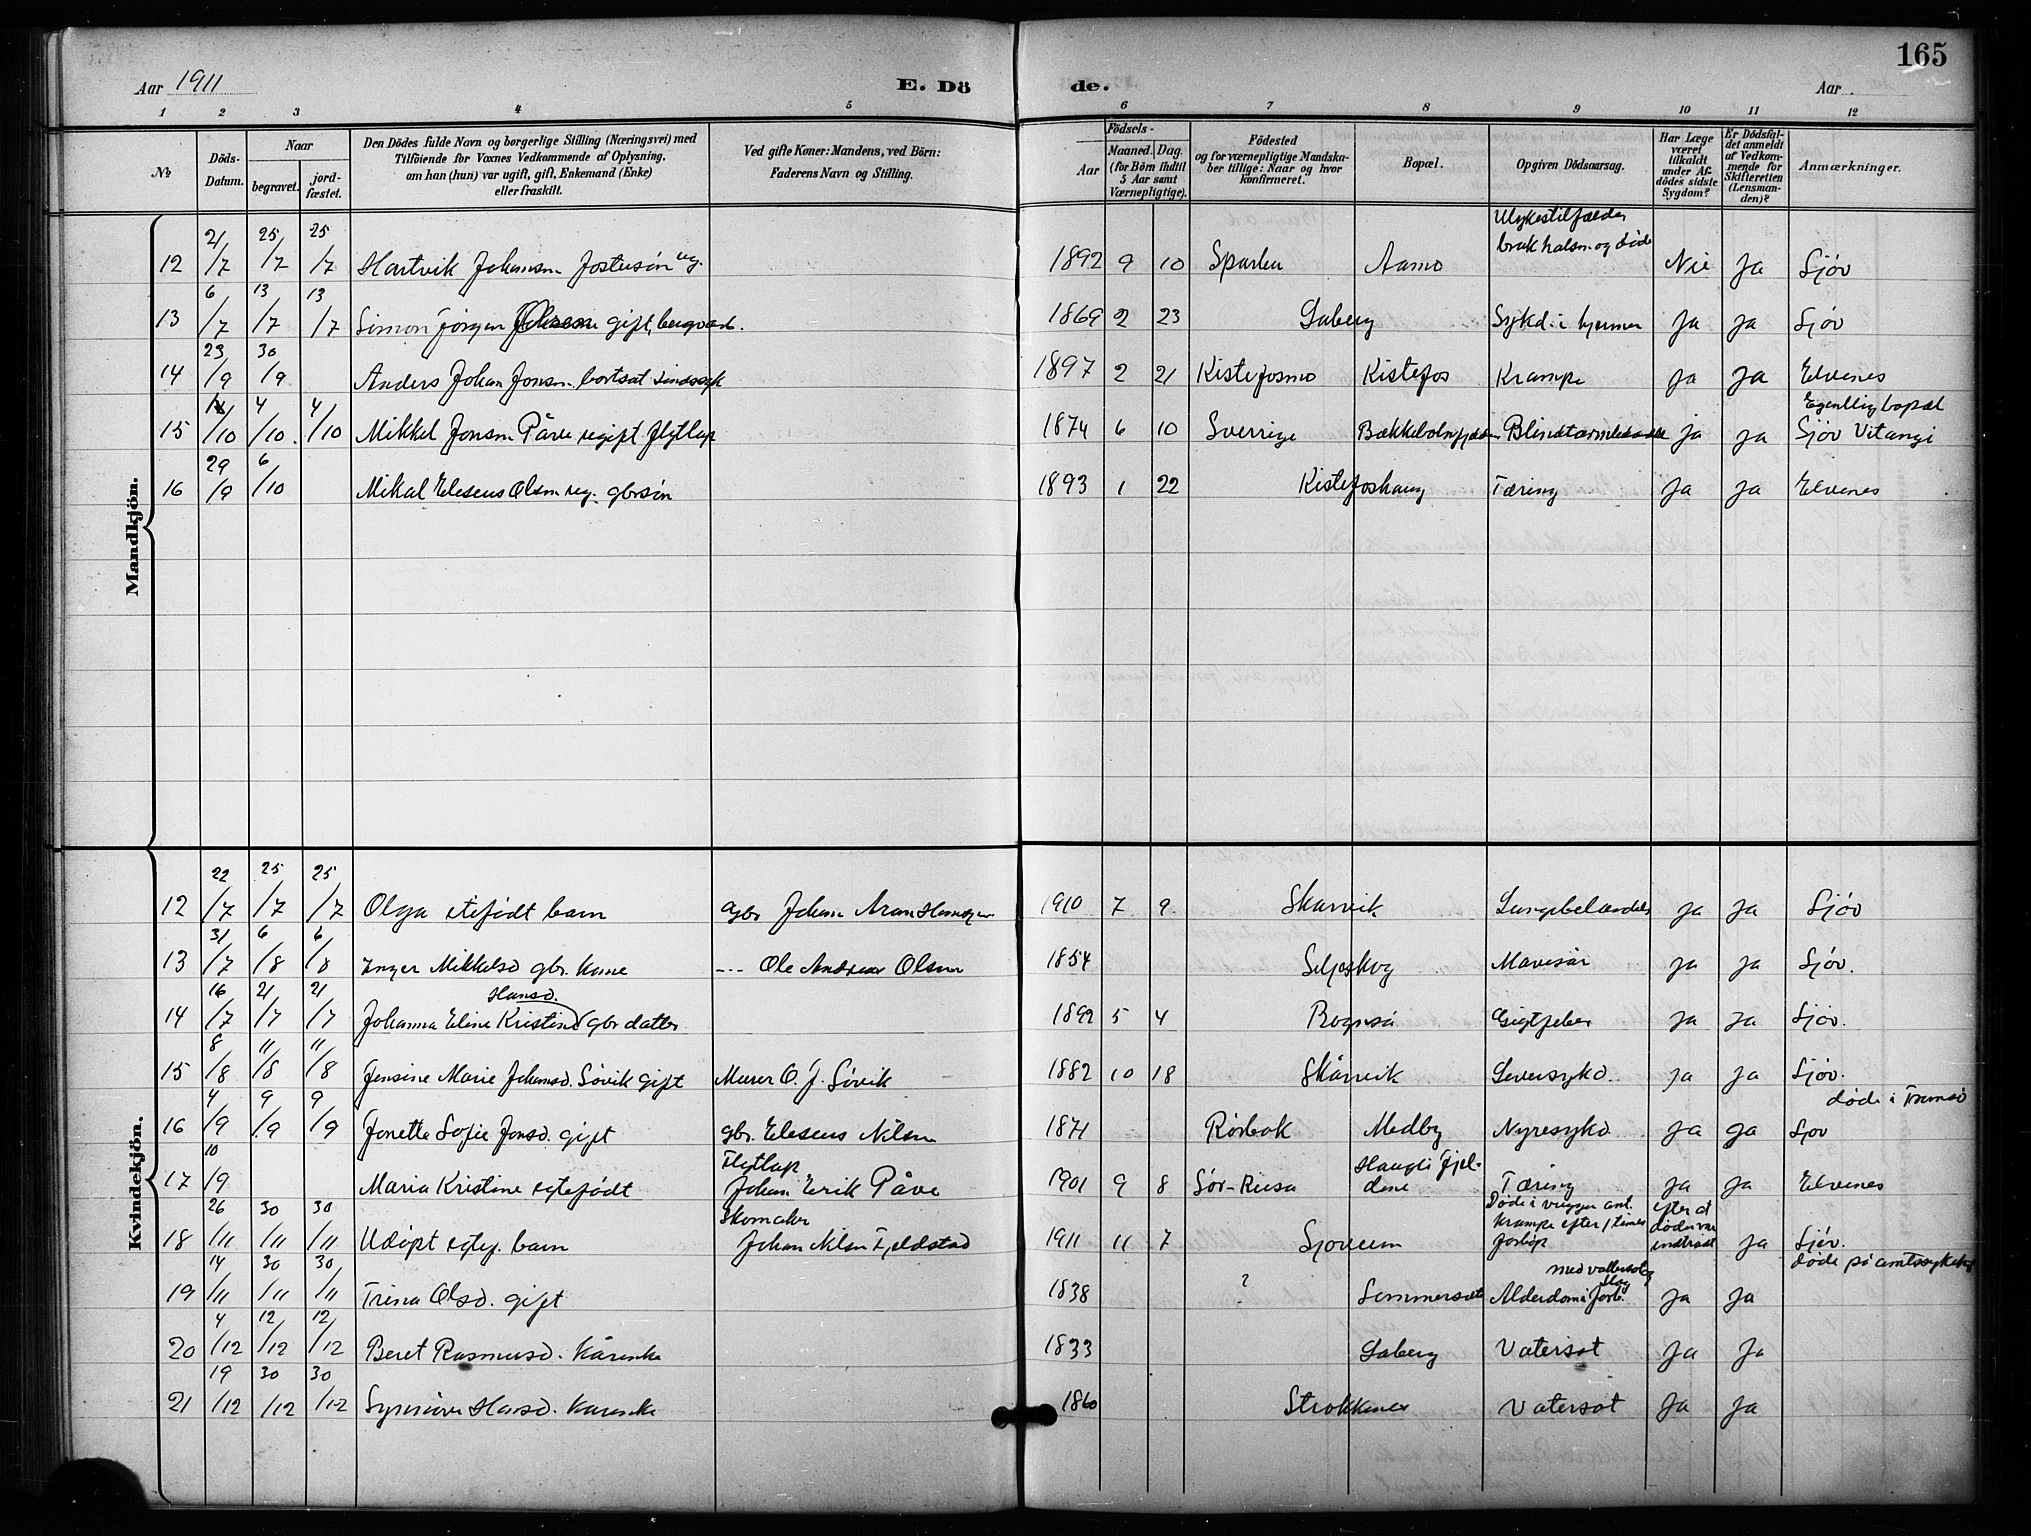 165
Aar 1911
E. Dö
de.
Aar
1 2 3 4 5 6 7 8 9 10 11 12
№
Döds-
Datum.
Naar
begravet.
jord-
fæstet.
Den Dödes fulde Navn og borgerlige Stilling (Næringsvei) med
Tilföiende for Voxnes Vedkommende af Oplysning,
om han (hun) var ugift, gift, Enkemand (Enke)
eller fraskilt.
Ved gifte Koner: Mandens, ved Börn:
Faderens Navn og Stilling.
Födsels-
Aar
Maaned. Dag.
(for Börn indtil
5 Aar samt
Værnepligtige).
Födested
og for værnepligtige Mandska-
ber tillige: Naar og hvor
konfirmeret.
Bopæl.
Opgiven Dödsaarsag.
Har Læge
været
tilkaldt
under Af-
dödes sidste
Sygdom?
Er Dödsfal-
det anmeldt
af Vedkom-
mende for
Skifteretten
(Lensman-
den)?
Anmærkninger.
Mandkjön.
12 21/7 25/7 25/7 Hartvik Johansn. ug. 1892 9 10 Aamo Ulykestilfælde brak halsn. og døde Nei Ja Sjøv
13 6/7 13/7 13/7 Simon Jørgen gift 1869 2 23 Laberg Sykd. i hjernen Ja Ja Sjøv
14 23/9 30/9 Anders Johan Jonsn. bortsat sindssyk 1897 2 21 Kistefosmo Kistefos Krampe Ja Ja Elvenes
15 /10 4/10 4/10 Mikkel Jonsn. Påve ugift flytlap 1874 6 10 Sverrige Ja Ja Egentlig bopæl Sjøv Vitangi
16 29/9 6/10 Mikal Eleseus Olsn. ug. gbrsøn 1893 1 22 Kistefoshaug Tæring Ja Ja Elvenes
Kvindekjön.
12 22/7 25/7 25/7 Olga barn gbr Johan 1910 7 9 Skarvik Ja Ja Sjøv
13 31/7 6/8 6/8 Inger Mikkelsd. gbr. kone --- Ole Andreas Olsen 1854 Seljeskog Mavesår Ja Ja Sjøv.
14 16/7 21/7 21/7 Johanna Eline Kristine Hansd. gbr datter 1892 5 4 Gigtfeber Ja Ja Sjøv.
15 8/8 11/8 11/8 Jensine Marie Johansd. Søvik gift Murer O. J. Søvik 1882 10 18 Skårvik Leversykd. Ja Ja Sjøv.
16 4/9 9/9 9/9 Jonette Sofie Jonsd. gift gbr. Eleseus Nilsn 1871 Rørbak Medby Nyresykd Ja Ja døde i Tromsø Sjøv
17 10/9 Maria Kristine egtefødt Flytlap Johan Erik Påve 1901 9 8 Sør-Reisa Haugli fjeldene Tæring Ja Ja Elvenes
18 26/11 30/11 30/11 Udøpt egtef. barn Skomaker Johan Nilsn Fjeldstad 1911 11 7 Sjøveien Døde i vuggen ant. krampe efter 1 times forløp efter at døden var indtrådt Ja Sjøv.
19 14/11 30/11 30/11 Trina Olsd. gift 1838 ? Sommersæt Alderdoms med vattersot og slag Ja Ja døde på amtssykehus
20 4/12 12/12 12/12 Beret Rasmusd. kårenke 1833 Laberg Vatersot Ja Ja
21 19/12 30/12 30/12 Synnøve Hansd. kårenke 1860 Strokkenes Vatersot Ja Ja